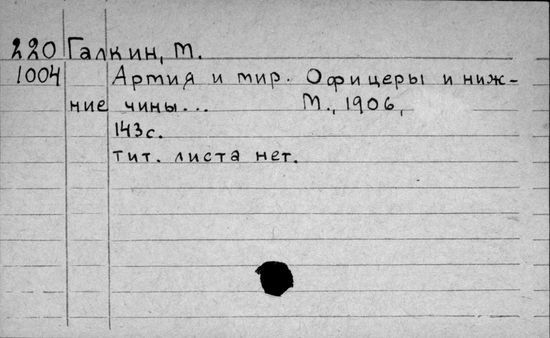 220 Галкин, М.
1004 Артия и тир. Офицеры и ниж-
ние чины... М., 1906,
143с.
тит. листа нет.